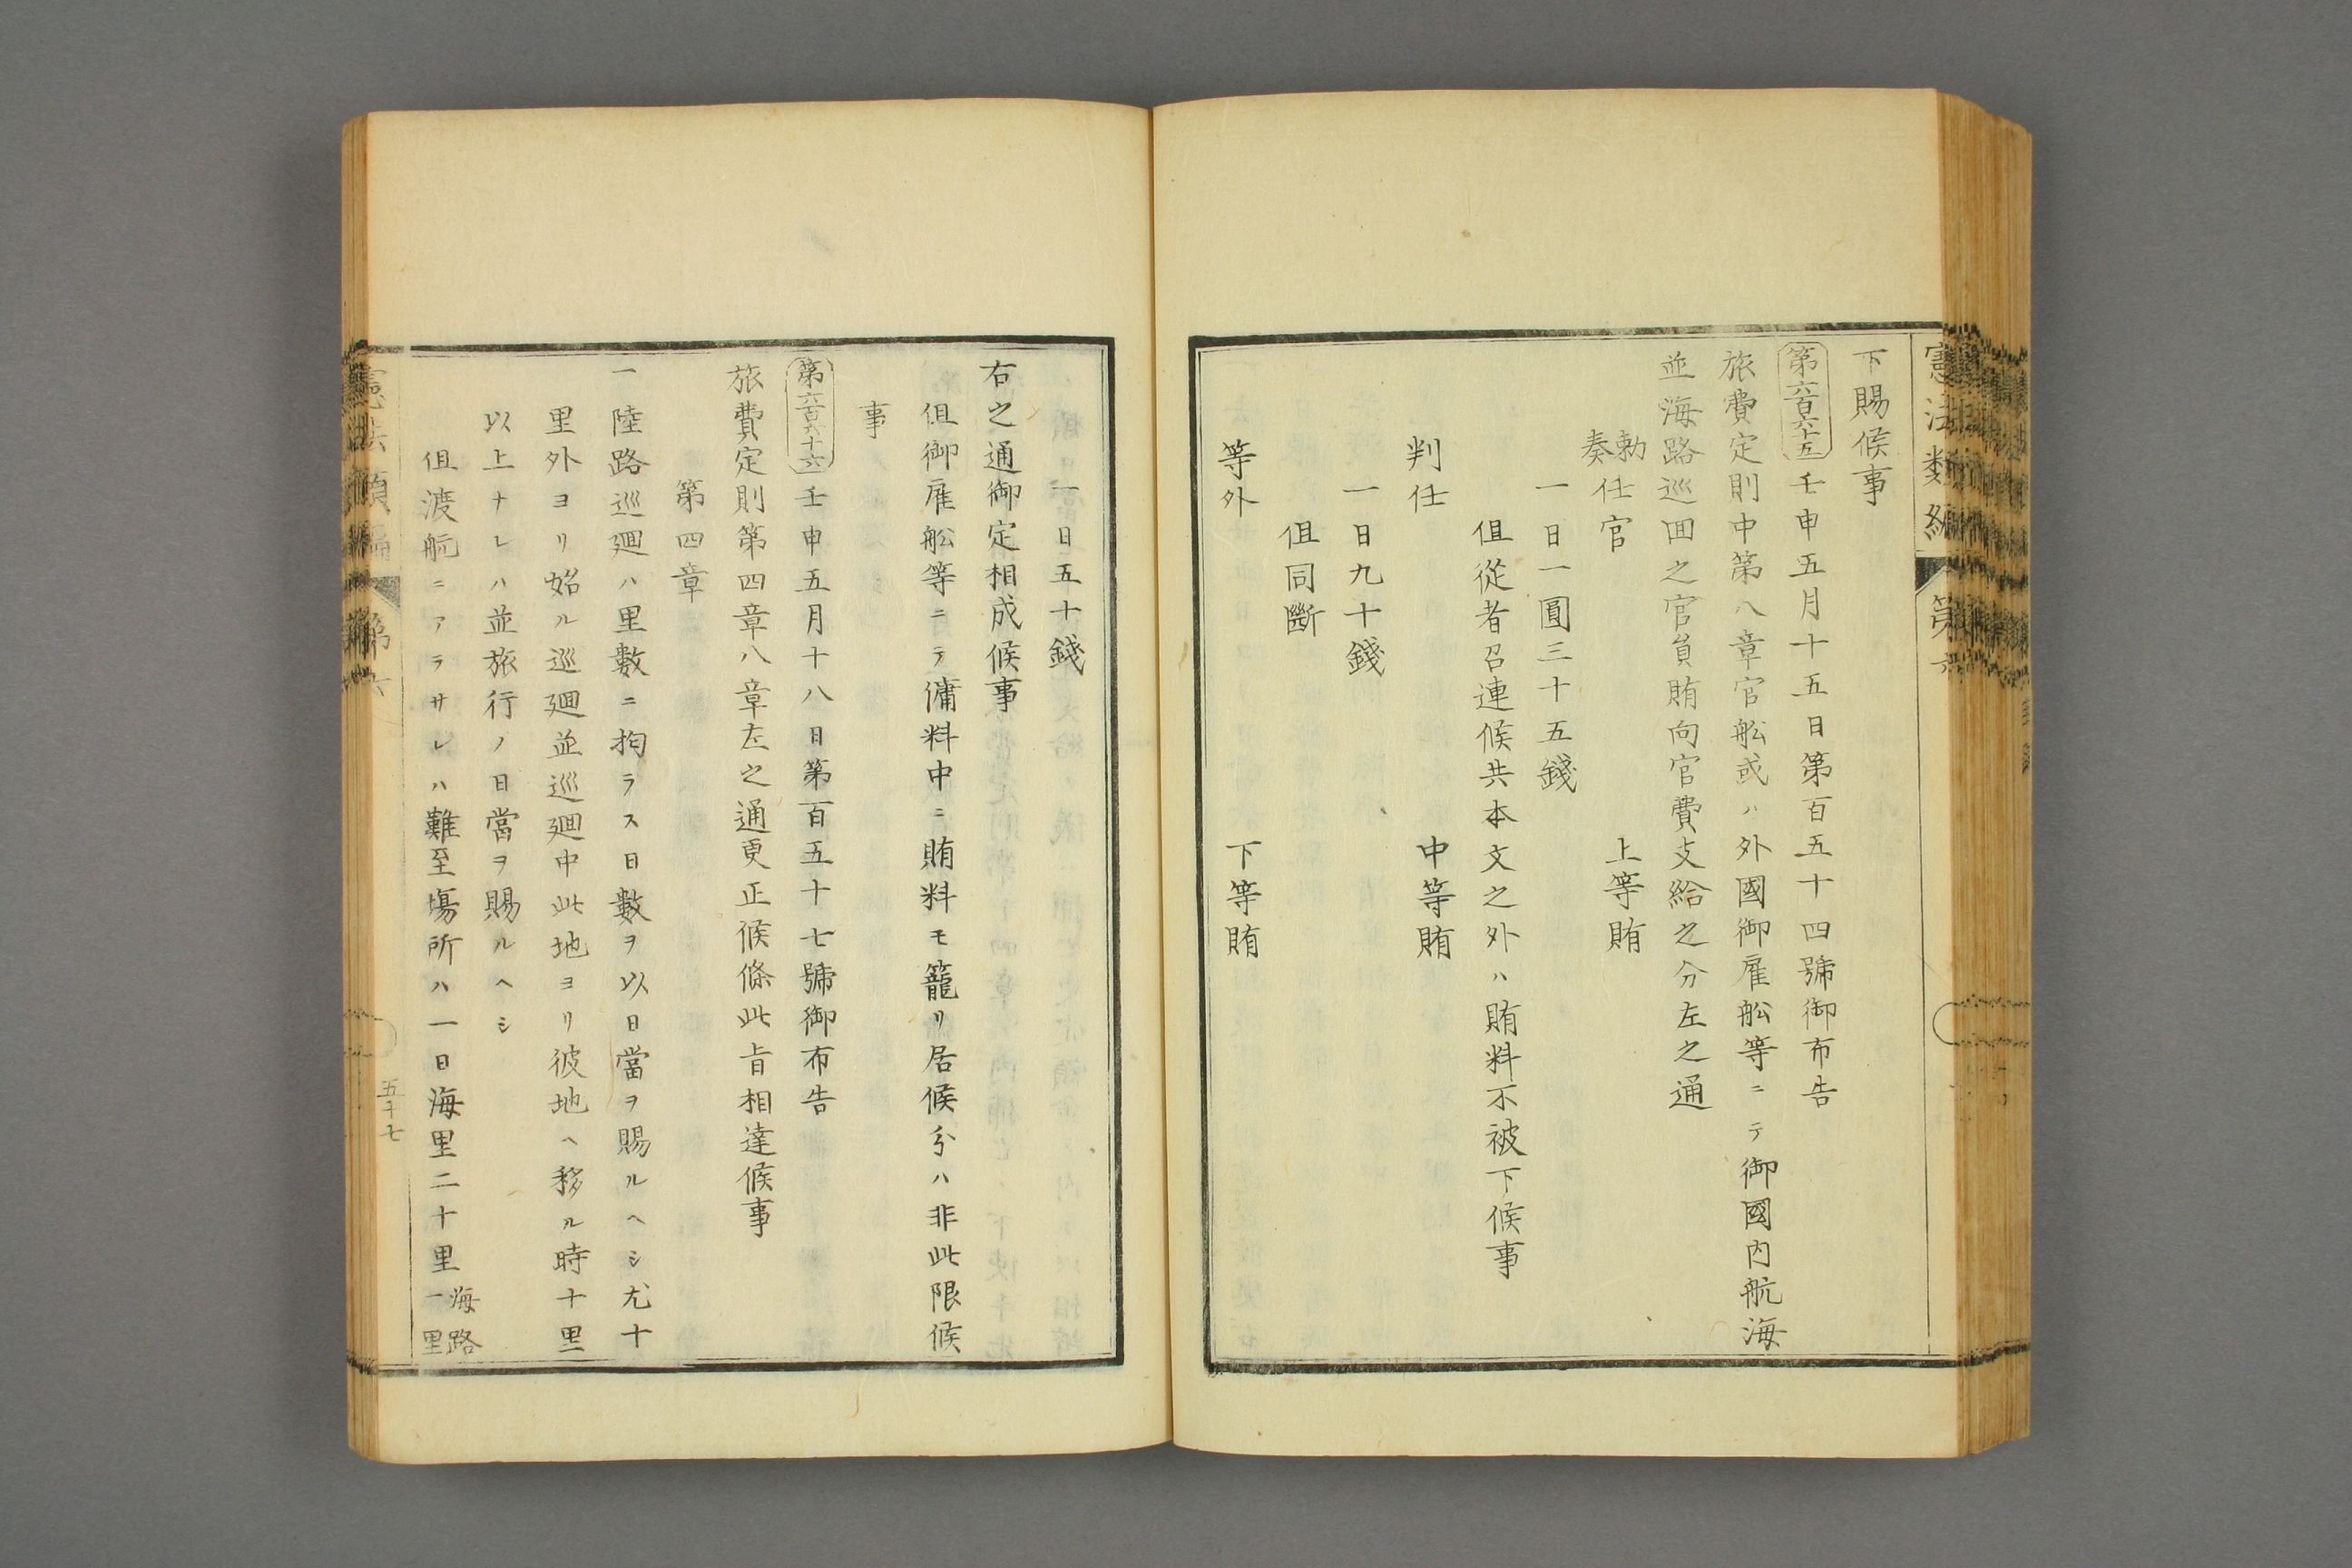 憲法類編　第六
下賜候事
第六百六十五　壬申五月十五日第百五十四號御布告
旅費定則中第八章官舩或ハ外國御雇舩等ニテ御國内航海
並海路巡囬之官員賄向官費支給之分左之通
勅奏任官　上等賄
一日一圓三十五錢
但從者召連候共本文之外ハ賄料不被下候事
判任　中等賄
一日九十錢
但同斷
等外　下等賄
一日五十錢
右之通御定相成候事
但御雇舩等ニテ傭料中ニ賄料モ籠リ居候分ハ非此限候
事
第六百六十六　壬申五月十八日第百五十七號御布告
旅費定則第四章八章左之通更正候條此旨相達候事
第四章
一陸路巡廻ハ里數ニ拘ラス日數ヲ以日當ヲ賜ルヘシ尤十
里外ヨリ始ル巡廻並巡廻中此地ヨリ彼地ヘ移ル時十里
以上ナレハ並旅行ノ日當ヲ賜ルヘシ
但渡航ニアラサレハ難至塲所ハ一日海里二十里海路一里
憲法類編　第六
五十七